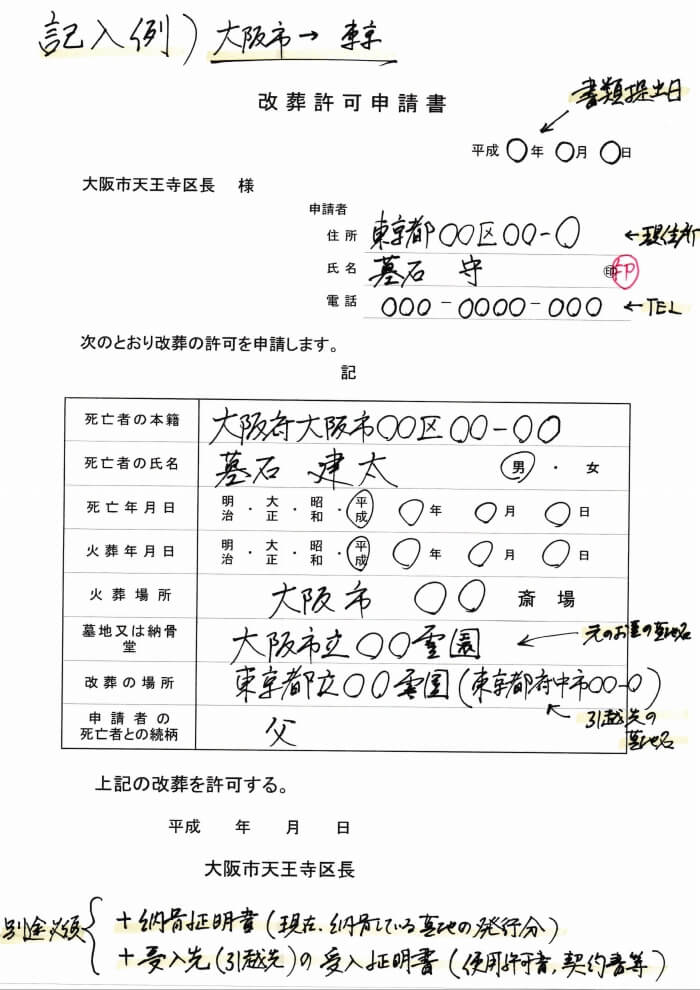 記入例) 大阪市→東京
改葬許可申請書
書類提出日
平成 〇年 〇月 〇日
大阪市天王寺区長 様
申請者
住所 東京都〇〇区〇〇-〇 ←現住所
氏名 墓石 守 ㊞ 印
電話 〇〇〇-〇〇〇〇-〇〇〇 ←TEL
次のとおり改葬の許可を申請します。
記
死亡者の本籍 大阪府大阪市〇〇区〇〇-〇〇
死亡者の氏名 墓石 建太 男・女
死亡年月日 明治・大正・昭和・平成 〇年 〇月 〇日
火葬年月日 明治・大正・昭和・平成 〇年 〇月 〇日
火葬場所 大阪市 〇〇 斎場
墓地又は納骨堂 大阪市立〇〇霊園 ←元のお墓の墓地名
改葬の場所 東京都立〇〇霊園(東京都府中市〇〇-〇)
引越先の
墓地名
申請者の
死亡者との続柄 父
上記の改葬を許可する。
平成 年 月 日
大阪市天王寺区長
別途必須
+納骨証明書(現在、納骨している墓地の発行分)
+受入先(引越先)の受入証明書(使用許可書、契約書等)